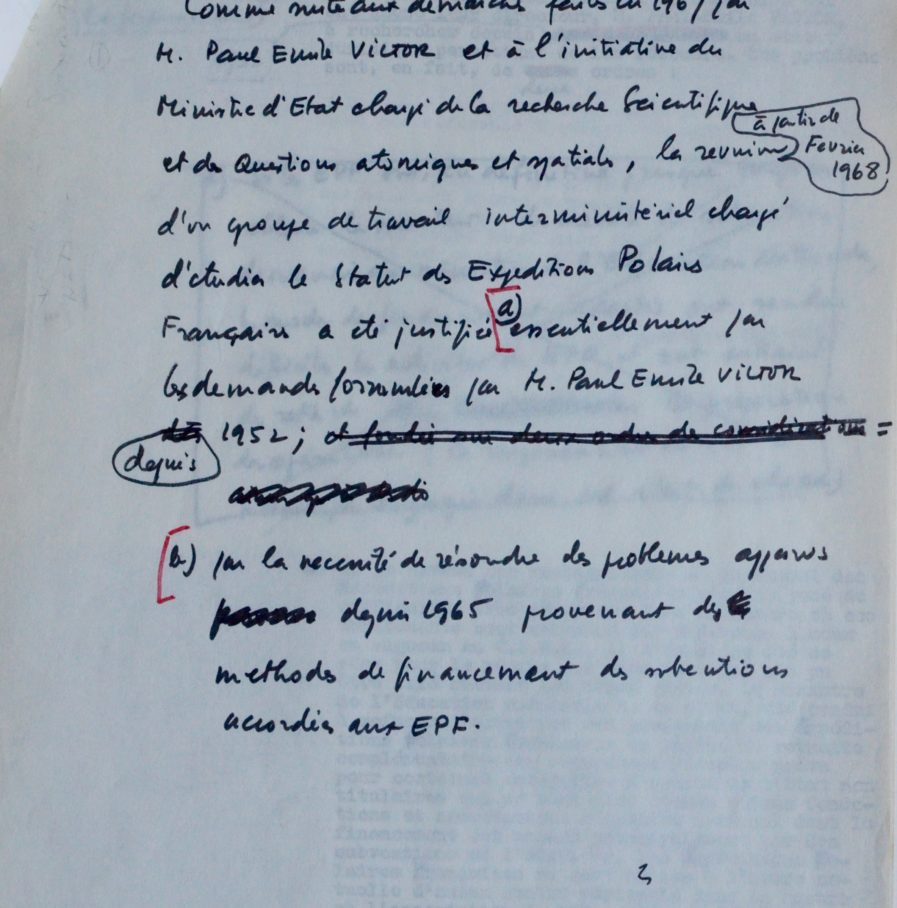 Comme suite aux démarches faites en 1967 par
M. Paul Emile VICTOR et à l'initiative du
Ministre d'Etat chargé de la recherche Scientifique
et des Questions atomiques et spatiales, la reunion
à partir de
Fevrier
1968
d'un groupe de travail interministériel chargé
d'etudier le Statut des Expeditions Polaires
Françaises a eté justifiée a) essentiellement par
les demandes formulées par M. Paul Emile VICTOR
dès 1952; et fondée sur deux ordres de considérations =
depuis
b) par la necessité de résoudre des problemes apparus
depuis 1965 provenant des
methodes de financement des subventions
accordées aux EPF.
3